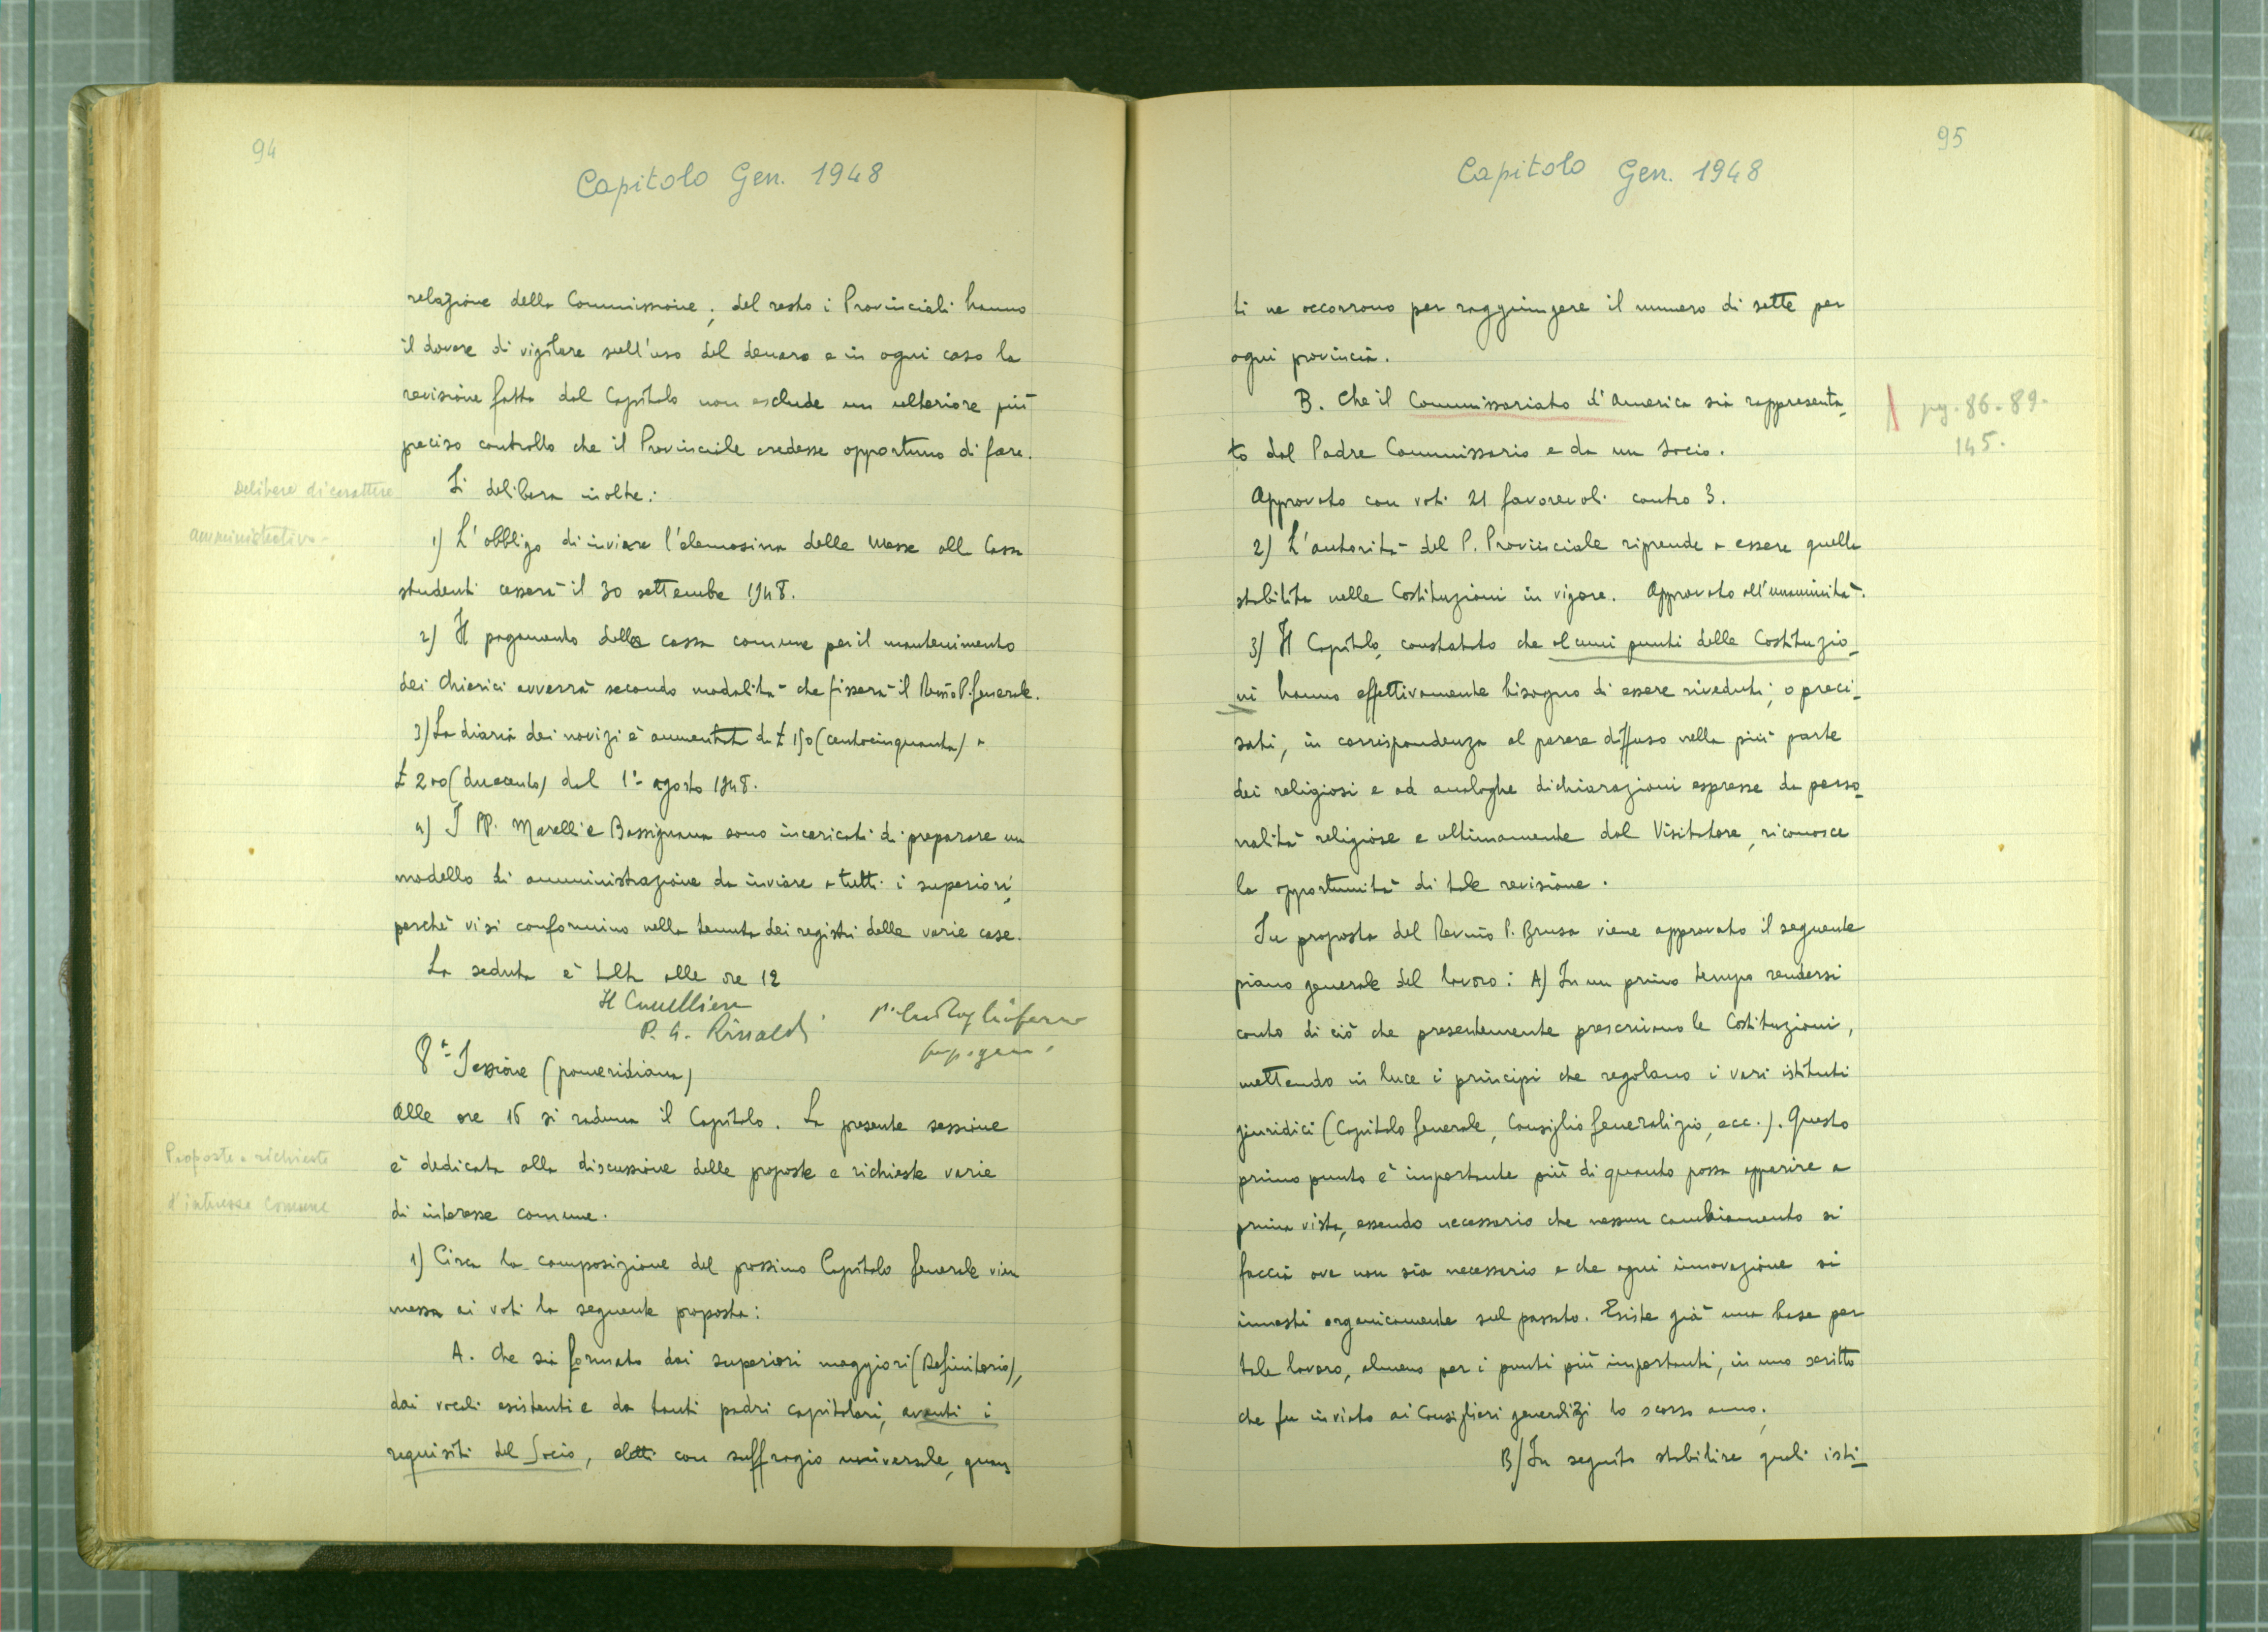 94
Capitolo Gen. 1948
relazione della Commissione; del resto i Provinciali hanno
il dovere di vigilare sull'uso del denaro e in ogni caso la
revisione fatta dal Capitolo non esclude un ulteriore più
preciso controllo che il Provinciale credesse opportuno di fare.
Delibere di carattere
amministrativo-
Si delibera inoltre:
1) L'obbligo di inviare l'elemosina delle Messe alla Cassa
studenti cesserà il 30 settembre 1948.
2) Il pagamento della cassa comune per il mantenimento
dei Chierici avverrà secondo modalità che fisserà il Rev̄mo P. Generale.
3) La diaria dei novizi è aumentata da £ 150 (centocinquanta) a
£ 200 (duecento) dal 1º agosto 1948.
4) I PP. Marelli e Bassignana sono incaricati di preparare un
modello di amministrazione da inviare a tutti i superiori,
perchè vi si conformino nella tenuta dei registri delle varie case.
La seduta è tolta alle ore 12
Il Cancelliere
P. G. Rinaldi
P. Tagliaferro
prep. gen.
8ª Sessione (pomeridiana)
Alle ore 16 si raduna il Capitolo. La presente sessione
è dedicata alla discussione delle proposte e richieste varie
di interesse comune.
Proposte e richieste
d'interesse comune
1) Circa la composizione del prossimo Capitolo Generale vien
messa ai voti la seguente proposta:
A. Che sia formato dai superiori maggiori (Definitorio),
dai vocali esistenti e da tanti padri capitolari, aventi i
requisiti del Socio, eletti con suffragio universale, quan
95
Capitolo Gen. 1948
ti ne occorrono per raggiungere il numero di sette per
ogni provincia.
B. Che il Commissariato d'America sia rappresenta
to dal Padre Commissario e da un socio.
pg. 86-89-
145.
Approvato con voti 21 favorevoli contro 3.
2) L'autorità del P. Provinciale riprende a essere quella
stabilita nelle Costituzioni in vigore. Approvato all'unanimità.
3) Il Capitolo, constatato che alcuni punti delle Costituzio-
ni hanno effettivamente bisogno di essere riveduti, o preci-
sati, in corrispondenza al parere diffuso nella più parte
dei religiosi e ad analoghe dichiarazioni espresse da perso-
nalità religiose e ultimamente dal Visitatore, riconosce
la opportunità di tale revisione.
Su proposta del Rev̄mo P. Brusa viene approvato il seguente
piano generale del lavoro: A) In un primo tempo rendersi
conto di ciò che presentemente prescrivono le Costituzioni,
mettendo in luce i principi che regolano i vari istituti
giuridici (Capitolo Generale, Consiglio Generalizio, ecc.). Questo
primo punto è importante più di quanto possa apparire a
prima vista, essendo necessario che nessun cambiamento si
faccia ove non sia necessario e che ogni innovazione si
innesti organicamente sul passato. Esiste già una base per
tale lavoro, almeno per i punti più importanti, in uno scritto
che fu inviato ai Consiglieri generalizi lo scorso anno;
B) In seguito stabilire quali isti-